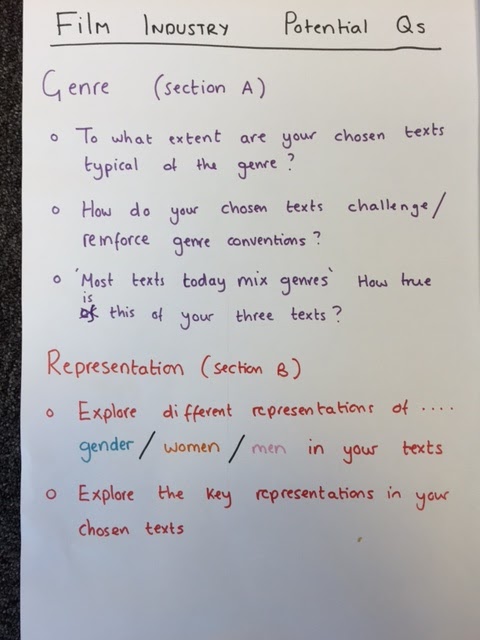 FILM INDUSTRY Potential Qs
Genre (section A)
o To what extent are your chosen texts
typical of the genre?
o How do your chosen texts challenge/
reinforce genre conventions?
o 'Most texts today mix genres' How true
is
of this of your three texts?
Representation (section B)
o Explore different representations of ....
gender / women / men in your texts
o Explore the key representations in your
chosen texts